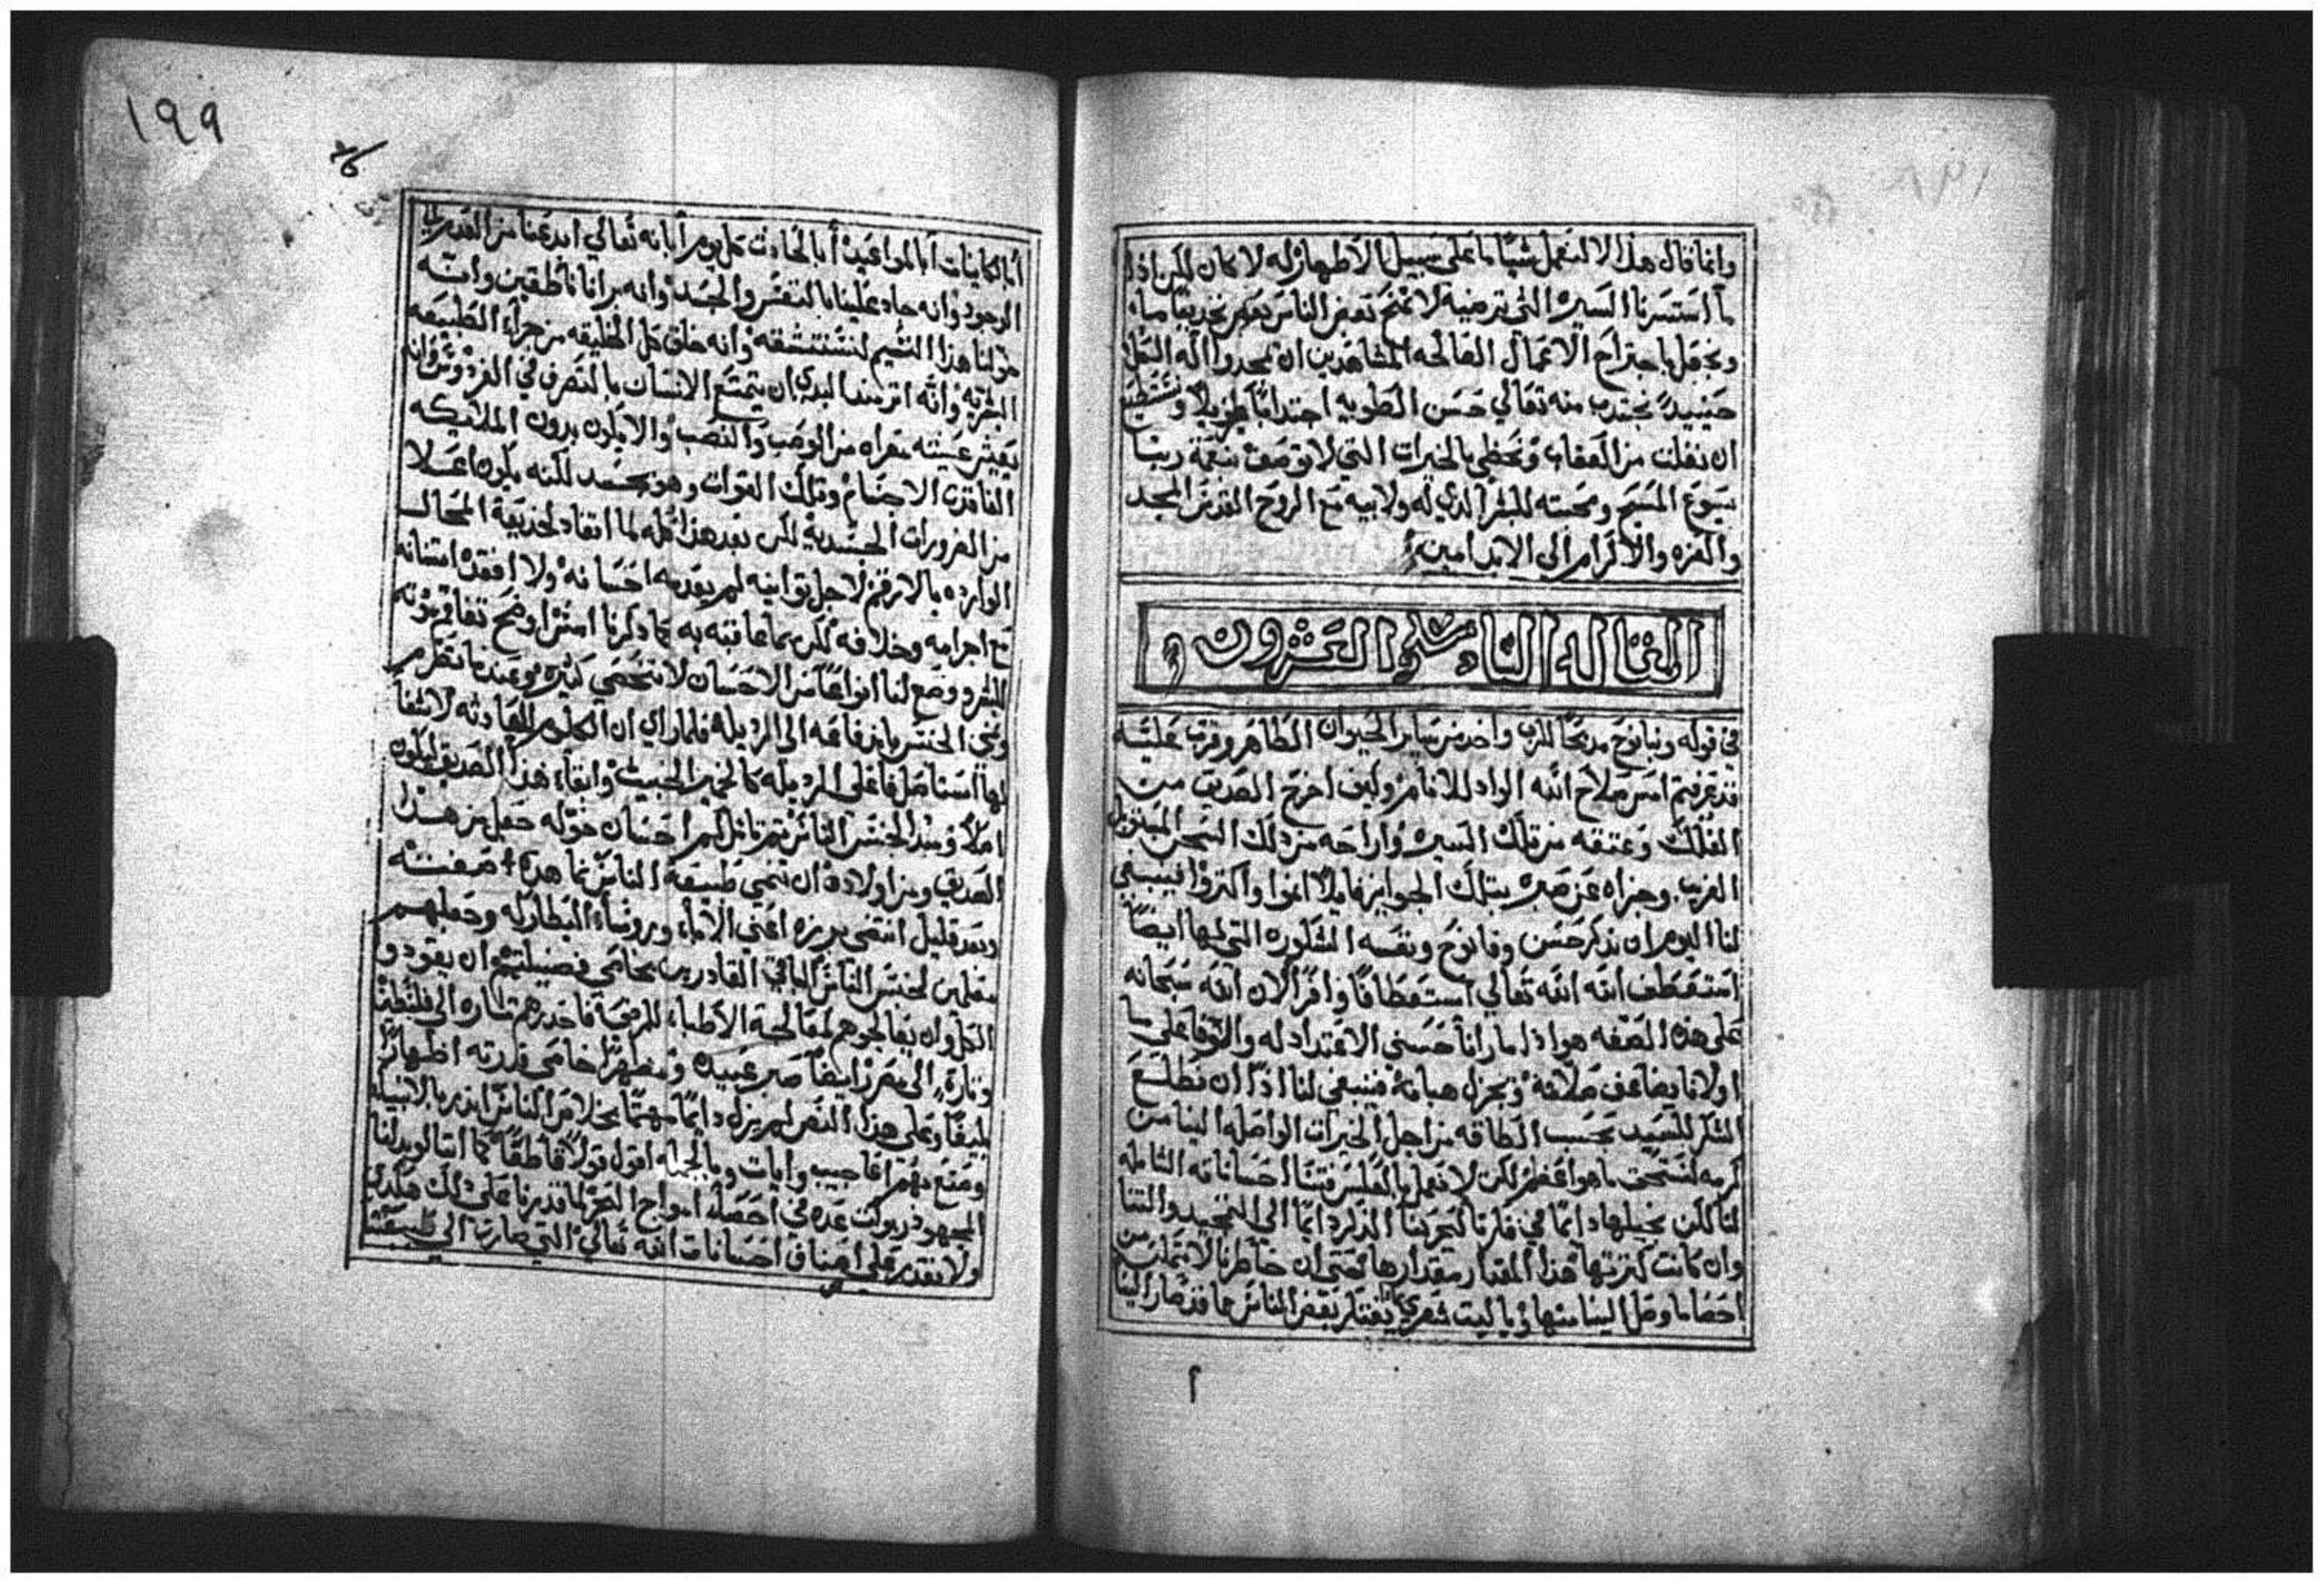 وانما قال هذا لا لنعمل شيًا ما على سبيل الاظهار له لا كان لكن اذا
ما استسرنا السيره التي ترضيه لا نمنح بعض الناس بعضهم تحذيقًا ما
ونجعل باجتراح الاعمال الصالحه المشاهدين ان يمجدوا اله الكل
حينيدً نجتدب منه تعالي حسن الطويه اجتدابًا طويلاً ونستطيع
ان نفلت من العقاب ونحظي بالخيرات التي لا توصف بنعمة ربنا
يسوع المسيح ومحبته للبشر الدي له ولابيه مع الروح القدس المجد
والعزه والاكرام الي الابد امين
المقاله السابعه والعشرون
في قوله وبنا نوح مدبحًا للرب واخد من ساير الحيوان الطاهر وقرب عليه
قد عرفتم امس صلاح الله الواد للانام وكيف اخرج الصديق من
الفلك وعتقه من تلك السيره واراحه من دلك السجن
الغريب وجزاه عن صبره بتلك الجوايز قايلاً انموا واكتروا فينبغي
لنا اليوم ان ندكر حسن وفا نوح ونفسه المشكوره التي لها ايضًا
استعطف الله الله تعالي استعطافًا وافرًا لان الله سبحانه
على هذه الصفه هو ادا ما رانا حسني الاعتداد له والوفا على ما
اولانا يضاعف صلاته ويجزل هباته فينبغي لنا ادًا ان نطلع
الشكر للسيد بحسب الطاقه من اجل الخيرات الواصله الينا من
كرمه لنستحق ما هو اعظم لكن لا نعمل بالعكس فتنسا احساناته الشامله
لنا لكن نجيلها دايمًا في فكرنا ليجرينا الدكر دايمًا الي التمجيد والثنا
وان كانت كثرتها هذا المقدار مقدارها حتى ان خاطرنا لا يتمكن من
احصا ما وصل الينا منها ويا ليت شعري يفتكر بعض الناس بما قد صار الينا
١٩٩
أبالكاينات أبالمواعيد أبالحادث كل يوم أبانه تعالي ابدعنا من العدم الي
الوجود وانه جاد علينا بالنفس والجسد وانه برانا ناطقين وانه
خولنا هذا النسيم لنستنشقه وانه خلق كل الخليقه من جراء الطبيعه
البشريه وانه اتر مند البدي ان يتمتع الانسان بالتصرف في الفردوس وانه
يعيش عيشه معراه من الوصب والنصب والا يكون بدون الملايكه
الفاقدين الاجسام وتلك القوات وهو بجسد لكنه يكون اعلا
من الضرورات الجسديه لكن بعد هذا كله لما انقاد لخديعة المحال
الوارده بالارقم لاجل توانيه لم يعدمه احسانه ولا افقده امتنانه
مع اجرامه وخلافه لكن بما عاقبه به كما دكرنا امس اوضح تفاقم
للبشر ووضع لنا انواعًا من الاحسان لا تحصي كتيره وعندما تصرم
ونمى الجنس باندفاعه الي الرديله فلما راي ان الكلوم العادثه لا شفا
لها استاصل فاعلي الرديله كالخمير الخبيت وابقاء هذا الصديق ليكون
اصلاً ومبدا لجنس الناس ثم تامل كم احسان خوله جعل من هذا
الصديق ومن اولاده ان تنمي طبيعة الناس نما هده صفته
وبعد قليل انتضى بررة اعني الاباء وروساء البطاركه وجعلهم
معلمين لجنس الناس الباقي القادرين بخاصي فضيلتهم ان يقودوا
الكل وان يعالجوهم لمعالجة الاطباء للمرضى فاحدرهم تاره الي فلسطين
وتارة الي مصر ايضًا صبر عبيده ومظهرًا خاصي قدرته اظهارًا
بليغًا وعلى هذا النص لم يزل دايمًا مهتمًا بخلاص الناس اندر بالانبياء
وصنع بهم اعاجيب وايات وبالجمله اقول قولاً قاطعًا كما اننا لو بدلنا
المجهود دربوات عده في احصا امواج البحر لما قدرنا على دلك هكدي
ولا نقدر على اصناف احسانات الله تعالي التي صارت الي طبيعتنا